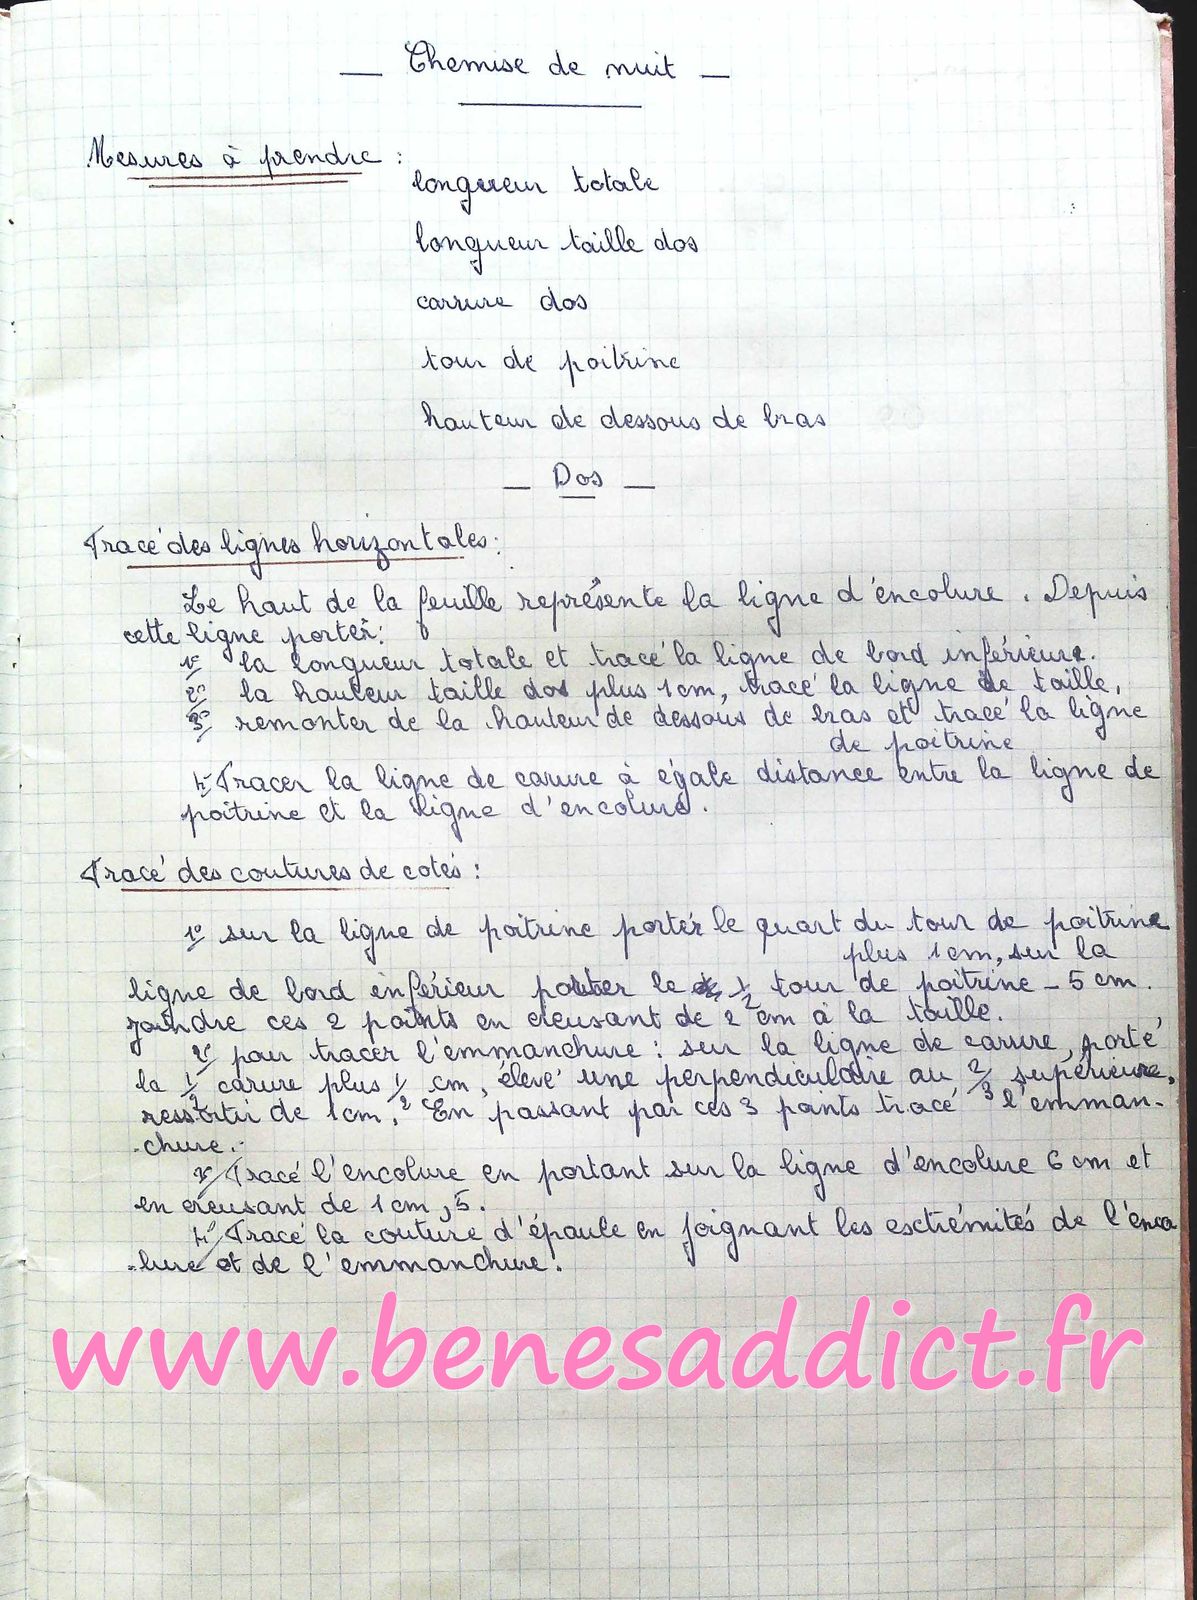 — Chemise de nuit —
Mesures à prendre :
longueur totale
longueur taille dos
carrure dos
tour de poitrine
hauteur de dessous de bras
— Dos —
Tracé des lignes horizontales :
Le haut de la feuille représente la ligne d'éncolure. Depuis
cette ligne porter :
1° la longueur totale et tracé la ligne de bord inférieure.
2° la hauteur taille dos plus 1 cm, tracé la ligne de taille,
3° remonter de la hauteur de dessous de bras et tracé la ligne
de poitrine
4° Tracer la ligne de carure à égale distance entre la ligne de
poitrine et la ligne d'encolure.
Tracé des coutures de cotés :
1° sur la ligne de poitrine porter le quart du tour de poitrine
plus 1 cm, sur la
ligne de bord inférieur porter le 1/2 tour de poitrine - 5 cm.
joindre ces 2 points en creusant de 2 cm à la taille.
2° pour tracer l'emmanchure : sur la ligne de carure, porté
la 1/2 carure plus 1/2 cm, élevé une perpendiculaire au 2/3 supérieure,
ressortir de 1 cm. En passant par ces 3 points tracé l'emman-
-chure.
3° Tracé l'encolure en portant sur la ligne d'encolure 6 cm et
en creusant de 1 cm, 5.
4° Tracé la couture d'épaule en joignant les esctrémités de l'enco
-lure et de l'emmanchure.
www.benesaddict.fr